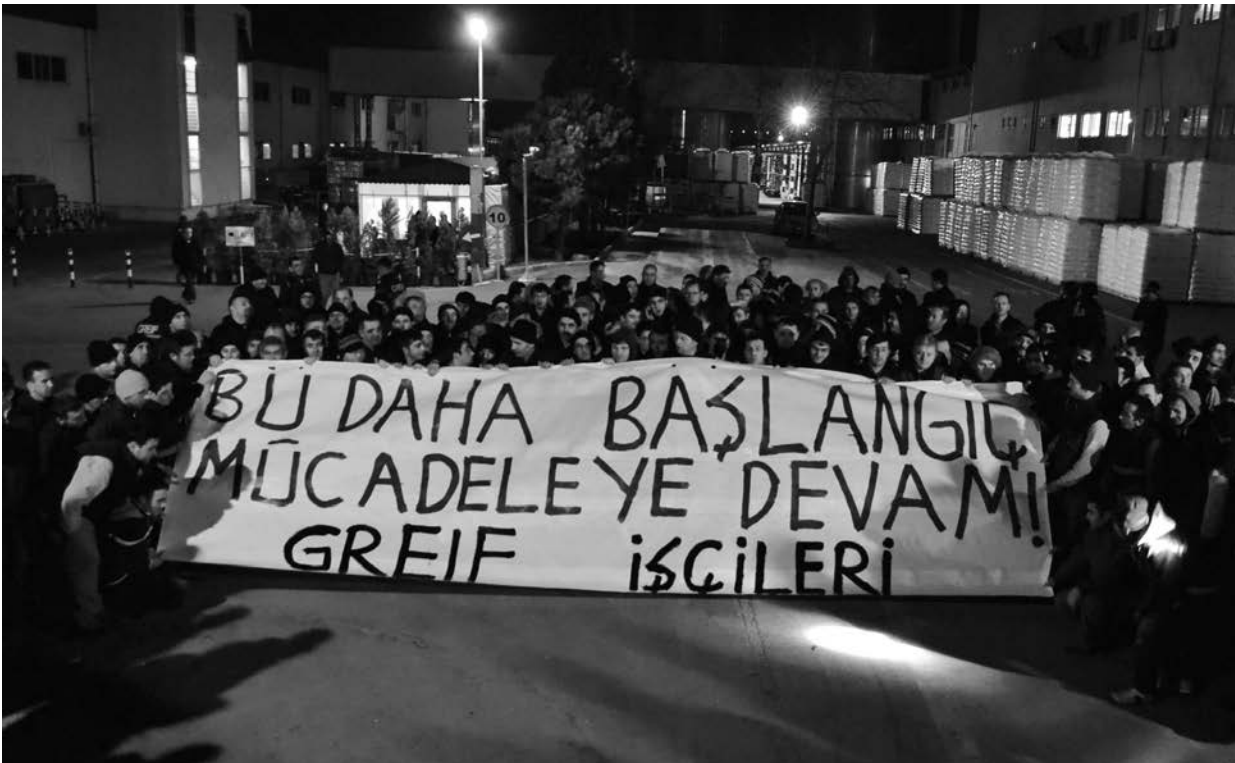 10
BÜ DAHA BAŞLANGIÇ
MÜCADELEYE DEVAM!
GREIF İŞÇİLERİ